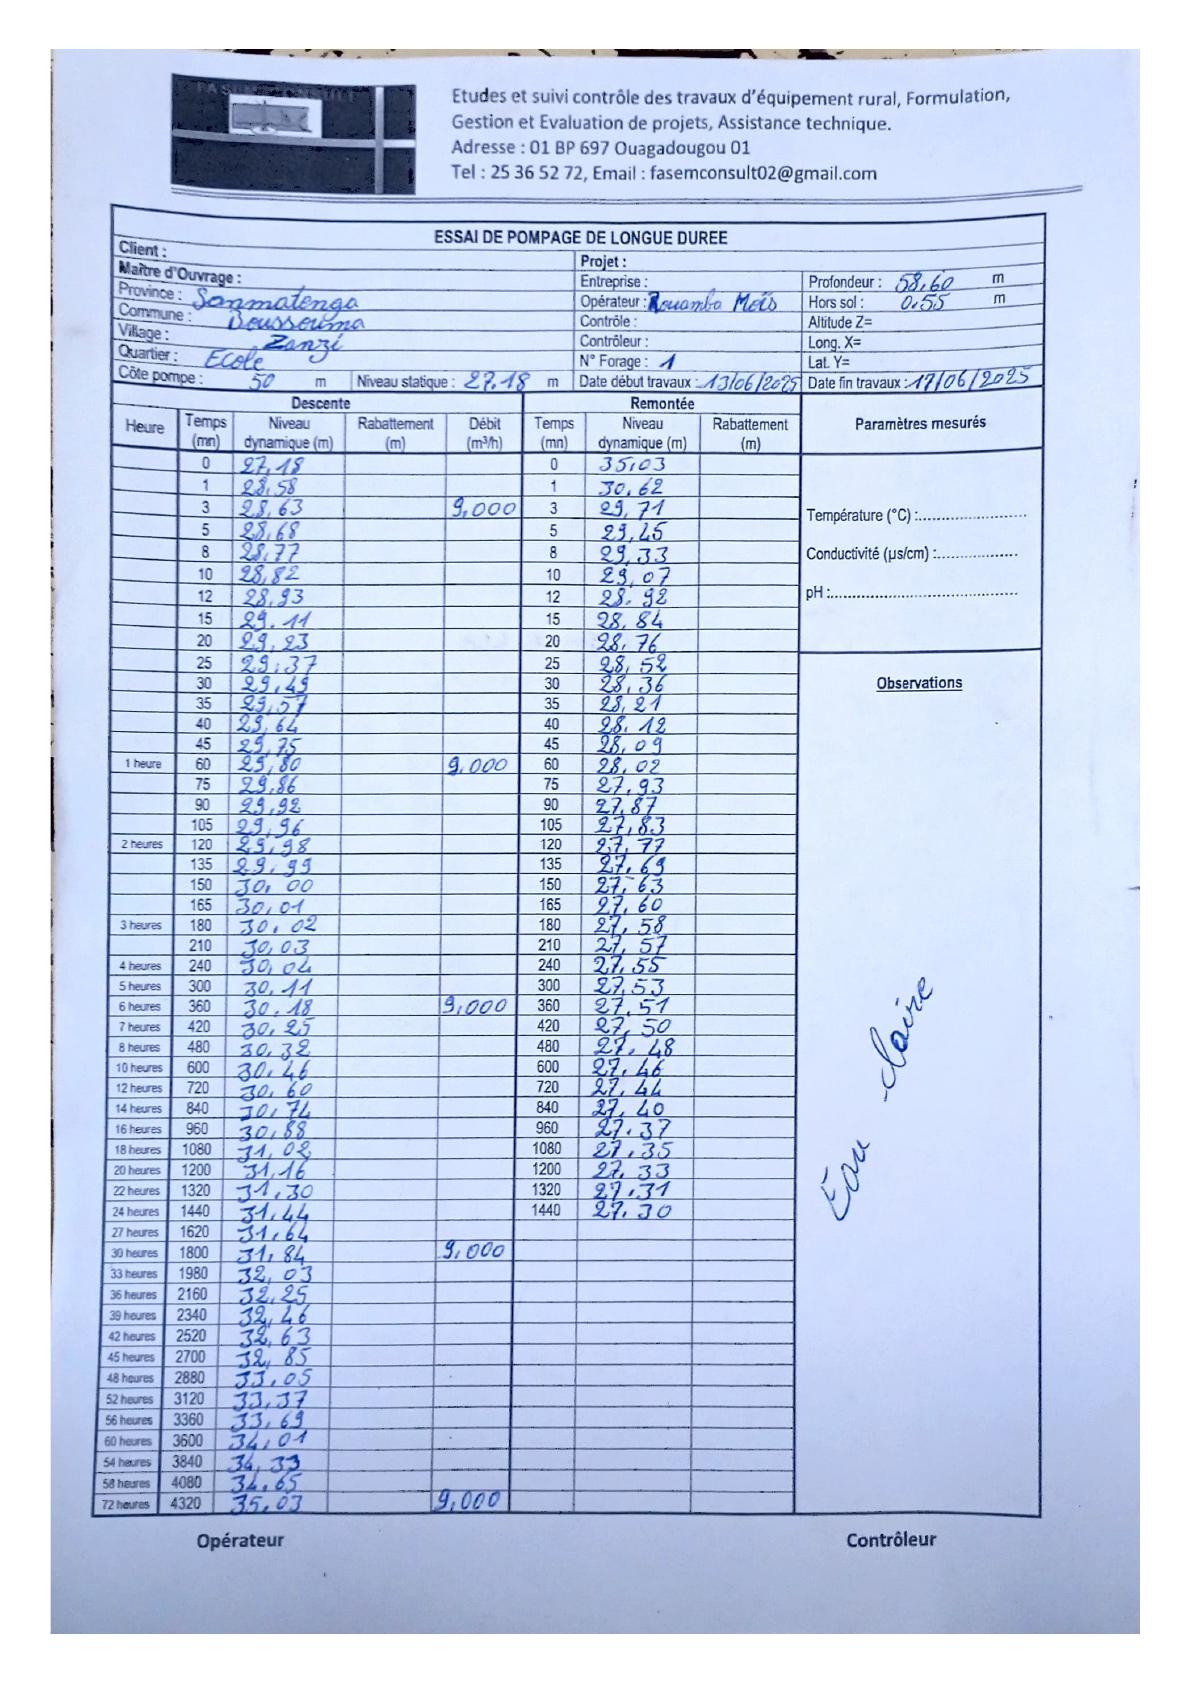 FASEM CONSULT
Etudes et suivi contrôle des travaux d'équipement rural, Formulation,
Gestion et Evaluation de projets, Assistance technique.
Adresse : 01 BP 697 Ouagadougou 01
Tel : 25 36 52 72, Email : fasemconsult02@gmail.com
ESSAI DE POMPAGE DE LONGUE DUREE
Client : Projet :
Maître d'Ouvrage : Entreprise : Profondeur : 58,60 m
Province : Sanmatenga Opérateur : Rouamba Moïs Hors sol : 0.55 m
Commune : Boussouma Contrôle : Altitude Z=
Village : Zanzi Contrôleur : Long. X=
Quartier : Ecole N° Forage : 1 Lat. Y=
Côte pompe : 50 m Niveau statique : 27.18 m Date début travaux : 13/06/2025 Date fin travaux : 17/06/2025
Descente Remontée Paramètres mesurés
Heure Temps (mn) Niveau dynamique (m) Rabattement (m) Débit (m³/h) Temps (mn) Niveau dynamique (m) Rabattement (m)
0 27,18 0 35,03
1 28,58 1 30,62
3 28,63 9,000 3 29,71
5 28,68 5 29,45
8 28,77 8 29,33
10 28,82 10 29,07
12 28,93 12 28.92
15 29.11 15 28,84
20 29,23 20 28,76
25 29,37 25 28,52
30 29,49 30 28,36
35 29,57 35 28,21
40 29,64 40 28,12
45 29,75 45 28,09
1 heure 60 29,80 9,000 60 28,02
75 29,86 75 27,93
90 29,92 90 27,87
105 29,96 105 27,83
2 heures 120 29,98 120 27,77
135 29,99 135 27,69
150 30,00 150 27,63
165 30,01 165 27,60
3 heures 180 30,02 180 27,58
210 30,03 210 27,57
4 heures 240 30,04 240 27,55
5 heures 300 30,11 300 27,53
6 heures 360 30,18 9,000 360 27,51
7 heures 420 30,25 420 27,50
8 heures 480 30,32 480 27,48
10 heures 600 30,46 600 27,46
12 heures 720 30,60 720 27,44
14 heures 840 30,74 840 27,40
16 heures 960 30,88 960 27.37
18 heures 1080 31,02 1080 27,35
20 heures 1200 31,16 1200 27,33
22 heures 1320 31,30 1320 27,31
24 heures 1440 31,44 1440 27,30
27 heures 1620 31,64
30 heures 1800 31,84 9,000
33 heures 1980 32,03
36 heures 2160 32,25
39 heures 2340 32,46
42 heures 2520 32,63
45 heures 2700 32,85
48 heures 2880 33,05
52 heures 3120 33,37
56 heures 3360 33,69
60 heures 3600 34,01
54 heures 3840 34,33
58 heures 4080 34,65
72 heures 4320 35,03 9,000
Température (°C) :........................
Conductivité (µs/cm) :.................
pH :..........................................
Observations
Eau claire
Opérateur Contrôleur